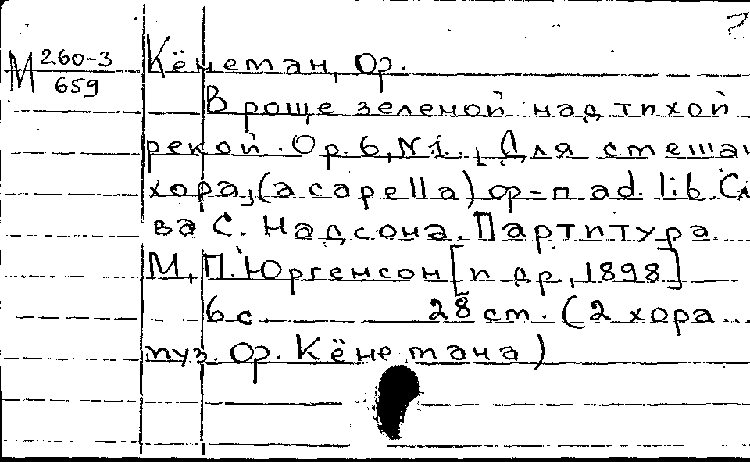 М 260-3
659
Кёнеман, Ор.
В роще зеленой над тихой
рекой. Ор. 6, N1., Для смешан
хора, (a capella) ф-п ad. lib. Сл
ва С. Надсона. Партитура.
М, П. Юргенсон [и др, 1898]
6 с 28 см. (2 хора
муз. Ор. Кёнемана)